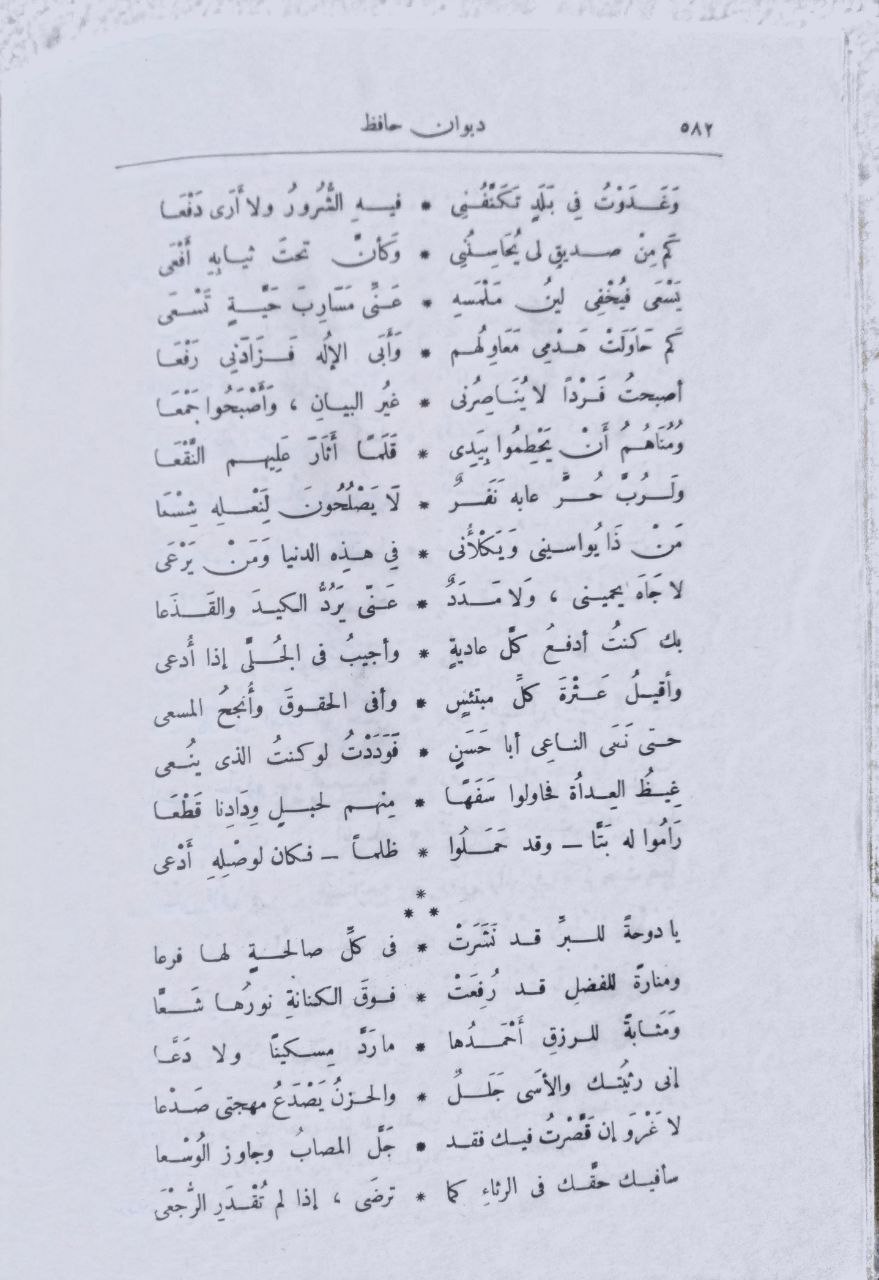 ٥٨٢ ديوان حافظ
وَغَدَوْتُ فِى بَلَدٍ تَكَنَّفُنِى * فيهِ الشُّرُورُ ولا أَرَى دَفْعَا
كَم مِنْ صديقٍ لى يُحَاسِنُنِى * وَكأنّ تحتَ ثيابِهِ أَفْعَى
يَسْعَى فَيُخْفِى لينُ مَلْمَسهِ * عَنِّى مَسَارِبَ حَيَّةٍ تَسْعَى
كَم حَاوَلَتْ هَدْمِى مَعَاوِلُهم * وَأَبَى الإلُه فَزَادَنِى رَفْعَا
أصبحتُ فَرْدًا لا يُنَاصِرُنى * غيُر البيانِ ، وَأَصْبَحُوا جَمْعَا
وَمُنَاهُمُ أَنْ يَحْطِمُوا بِيَدِى * قَلَمًا أَثَارَ عَلِيهم النَّقْعَا
وَلَرُبَّ حُرٍّ عابه نَفَرٌ * لَا يَصْلُحُونَ لِنَعْلهِ شِسْعَا
مَنْ ذَا يُواسينى وَيَكْلَأُنى * فِى هذِه الدنيا وَمَنْ يَرْعَى
لا جَاهَ يحمينى ، وَلا مَدَدٌ * عَنّى يَرُدُّ الكيدَ والقَذَعا
بك كنتُ أدفعُ كلَّ عاديةٍ * وأجيبُ فى الجُلَّى إذا أُدعى
وأقيلُ عَثْرَةَ كلِّ مبتئسٍ * وأفى الحقوقَ وأُنجحُ المسعى
حتى نَعَى الناعِى أبا حَسَنٍ * فَوَدَدْتُ لو كنتُ الذى يُنعى
غِيظُ العداُة فحاولوا سَفَهًا * مِنْهم لحبلِ وِدَادِنا قَطْعَا
رَامُوا له بَتًّا – وقد حَمَلُوا * ظلماً – فكان لوصْلِهِ أَدْعى
*
* *
يا دوحةً للبرِّ قد نَشَرَتْ * فى كلِّ صالحةٍ لها فرعا
ومنارةً للفضلِ قد رُفِعَتْ * فوقَ الكنانةِ نورُها شَعَّا
وَمَثابةً للرزقِ أَحْمَدُها * ما رَدَّ مِسكينًا ولا دَعَّا
إنى رثيْتُك والأسَى جَلَلٌ * والحزنُ يَصْدَعُ مهجتى صَدْعا
لا غَرْوَ إن قَصَّرْتُ فيك فقد * جَلَّ المصابُ وجاوز الوُسْعا
سأفيك حقَّك فى الرثاءِ كما * ترضَى ، إذا لم تُقْدَرِ الرُّجعَى